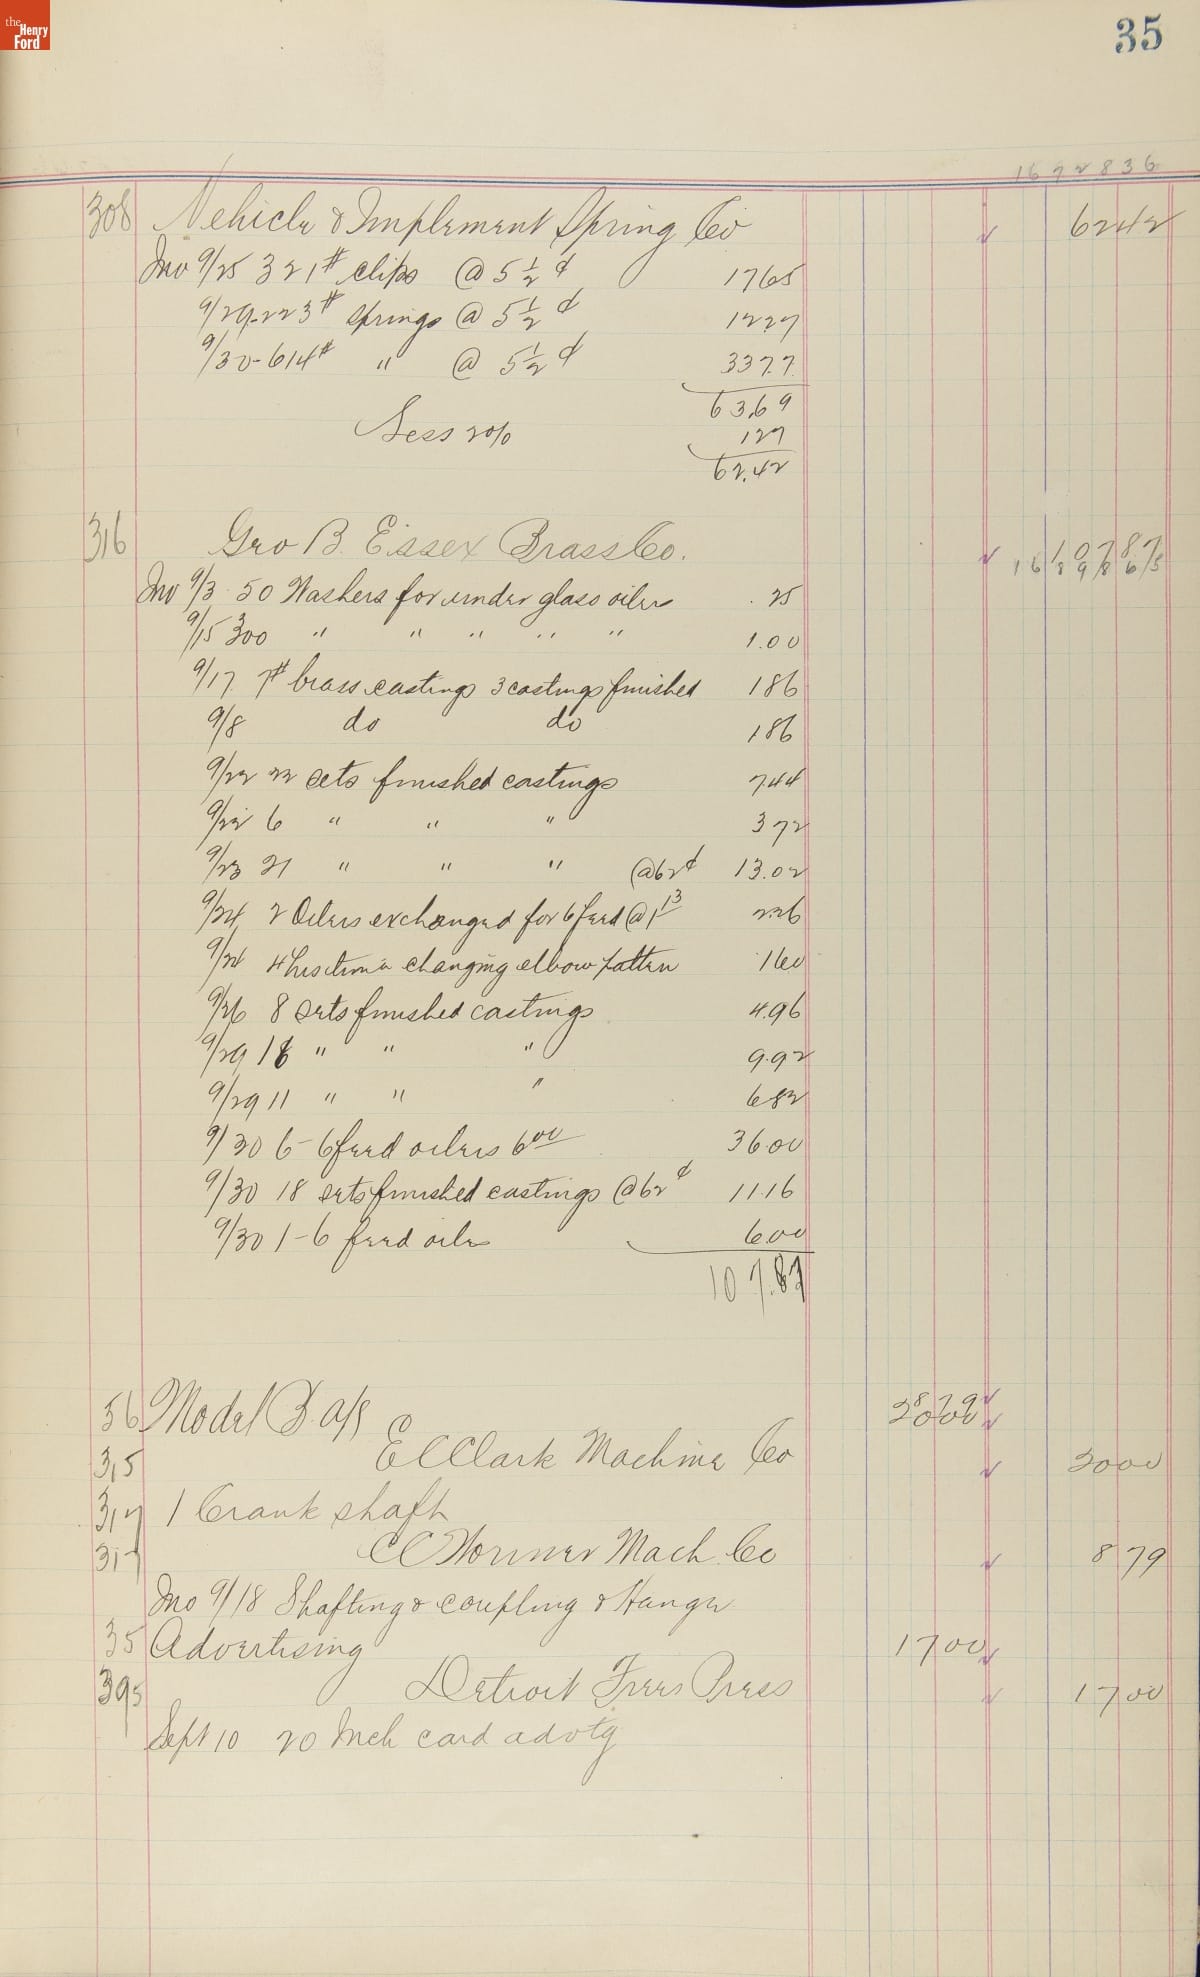 the
Henry
Ford
35
1672836
308 Vehicle & Implement Spring Co 62 42
Inv 9/25 321# clips @ 5 1/2 ¢ 1765
9/29-223# springs @ 5 1/2 ¢ 1227
9/30-614# " @ 5 1/2 ¢ 3377
63.69
Less 2% 127
62.42
316 Geo B. Essex Brass Co. 107 87
Inv 9/3 50 Washers for under glass oilers .25
9/15 300 " " " " " 1.00
9/17 7# brass castings 3 castings finished 186
9/8 do do 186
9/22 22 sets finished castings 744
9/22 6 " " " 372
9/23 21 " " " @62¢ 13.02
9/24 2 Oilers exchanged for 6 feed @ 1 13 226
9/24 4 hrs time changing elbow patten 160
9/26 8 sets finished castings 4.96
9/29 16 " " " 9.92
9/29 11 " " " 682
9/30 6-6 feed oilers 6 00 36.00
9/30 18 sets finished castings @62¢ 11.16
9/30 1-6 feed oiler 6.00
107.87
56 Model B. a/c 28 79
20 00
315 E C Clark Machine Co 20 00
1 Crank shaft
317 C C Wormer Mach. Co 8 79
Inv 9/18 Shafting & coupling & Hanger
35 Advertising 17 00
395 Detroit Free Press 17 00
Sept 10 20 Inch card advtg